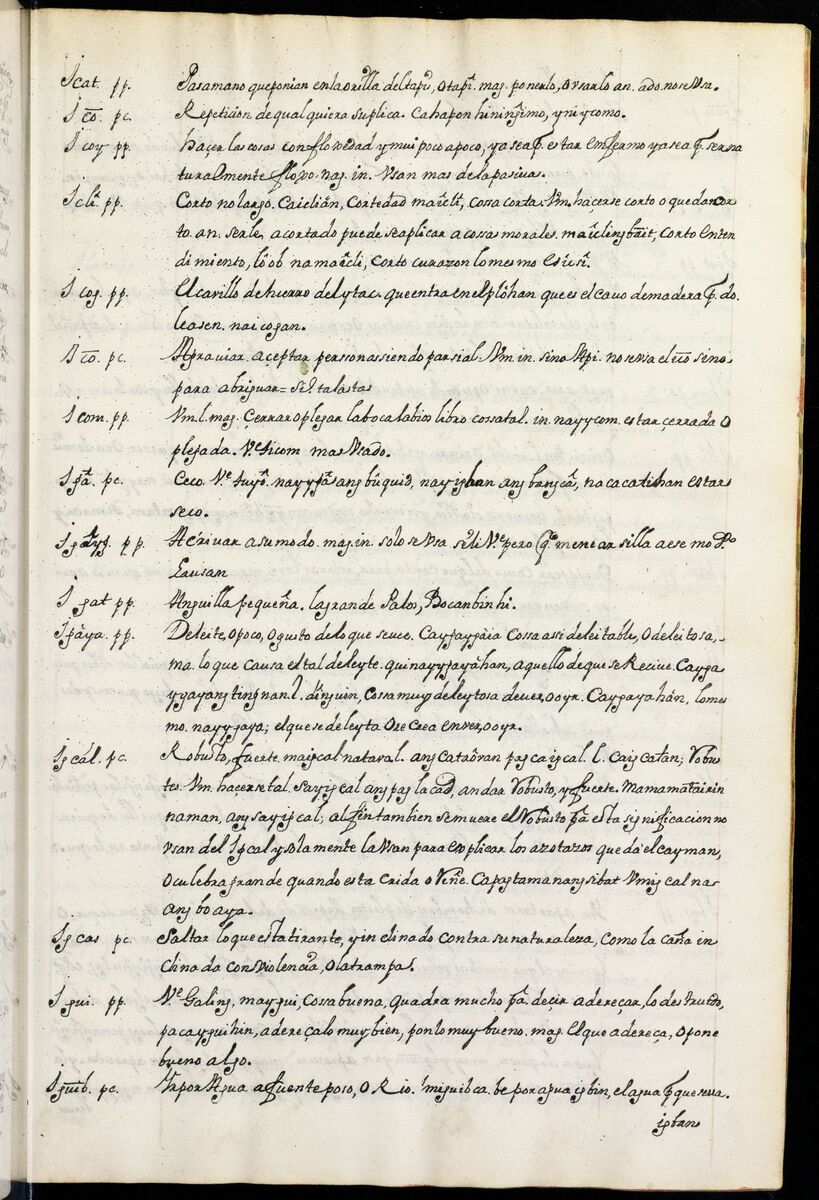 Icat. pp. Pasamano que ponian en la orilla del tapi, o tapi. mag. ponerlo, o usarlo an. ado. no se Usa.
I co. pc. Repeticion de qualquiera suplica. Cahapon hiningimo, yniycomo.
I coy pp. haçer las cosas con floxedad y mui poco a poco, ya sea p. estar enfermo ya sea p. ser na
turalmente floxo. nag. in. Usan mas de la pasiva.
I cli. pp. Corto no largo. Caiclian, Cortedad maicli, cossa corta. Vm. haçerse corto o quedar cor
to. an. serle, acortado puede se aplicar a cossas morales. maicling bait, corto Enten
dimiento, loob na maicli, corto curazon lo mesmo
I cog pp. El carillo de hierro del ytac. que entra en el plohan que es el cavo de madera p. do.
lea sen. naicogan.
I co. pc. Agraviar. aceptar personas siendo parsial. Vm in. sino Api. no se usa el ico sino
para abriguar =
I com. pp. Vm. l. mag. Çerrar o plegar la boca labios libro cossa tal. in. nayycom. estar çerrada o
plegada. Ve ticom mas Usado.
I ga. pc. Ceco. Ve tuyo. nayyga ang buquid, nayighan ang bangca, nacacatighan estar
seco.
pp. Acrivar a su modo. mag. in. solo se Usa Ve pero menear silla a ese modo
Lausan
I gat pp. Anguilla pequeña. la grande Palos, Bocanbinhi.
I gàya. pp. Deleite, o poco, o gusto de lo que se vee. Caygaygàia Cossa assi deleitable, o deleitosa,
ma. lo que causa el tal deleyte. quinayygayàhan, aquello de que se Recive. Cayga
ygayang tingnan. l. dingguin, Cossa muy deleytosa de ver, o oyr. Caygayahán, lo mes
mo. nayygaya; el que se deleyta o Recrea en ver, o oyr.
Ig cál. pc. Robusto, fuerte. maigcal natural. ang cataóvan pag caigcal. l. Caigcatan; Robus
tes. Vm. haçerse tal. Sayigcal ang pag lacad, andar Robusto, y fuerte. Mamamatai rin
naman, ang sayigcal; al fin tambien se muere el Robusto pa. esta significacion no
usan del Igcal y solamente la Usan para explicar los azotazos que dá el cayman,
o culebra grande quando esta erida o Riñe. Capagtamanang sibat Umigcal na
ang boaya.
Ig cas pc. Saltar lo que esta tirante, y inclinado contra su naturaleza, Como la caña in
clinada con violencia, o la trampa.
I gui. pp. Ve Galing, maygui, Cossa buena, quadra mucho pa. deçir adereçar, lo destruido,
pacayguihin, adereçalo muy bien, ponlo muy bueno. mag. El que adereça, o pone
bueno algo.
I guib. pc. Yr por Agua a fuente poso, o Rio. Umiguib ca. be por agua igbin, el agua p. que se va.
igban